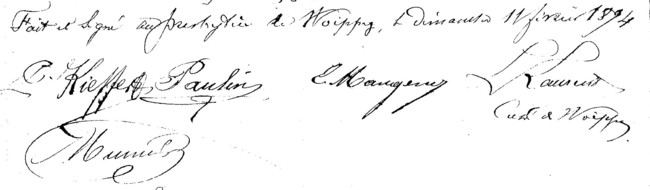 Fait et signé au presbytère de Woippy, le dimanche 11 février 1894
P. Kieffer Paulin E Mangenot L Laurent
Curé de Woippy